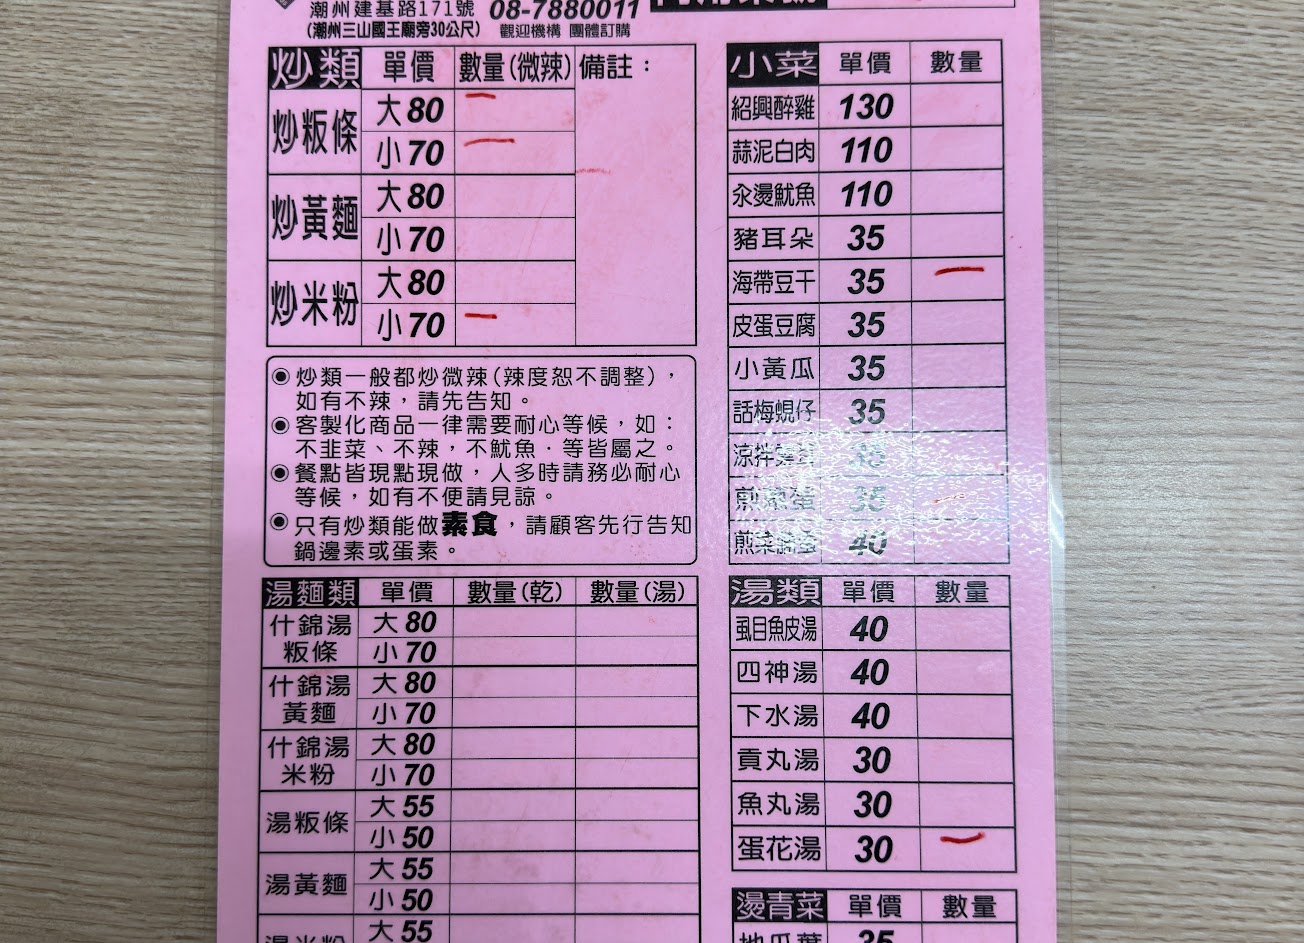 潮州建基路171號 08-7880011
(潮州三山國王廟旁30公尺) 觀迎機構 團體訂購
炒類 單價 數量(微辣) 備註：
炒粄條 大80
小70
炒黃麵 大80
小70
炒米粉 大80
小70
◉炒類一般都炒微辣(辣度恕不調整)，
如有不辣，請先告知。
◉客製化商品一律需要耐心等候，如：
不韭菜、不辣，不魷魚．等皆屬之。
◉餐點皆現點現做，人多時請務必耐心
等候，如有不便請見諒。
◉只有炒類能做素食，請顧客先行告知
鍋邊素或蛋素。
湯麵類 單價 數量(乾) 數量(湯)
什錦湯粄條 大80
小70
什錦湯黃麵 大80
小70
什錦湯米粉 大80
小70
湯粄條 大55
小50
湯黃麵 大55
小50
湯米粉 大55
小菜 單價 數量
紹興醉雞 130
蒜泥白肉 110
汆燙魷魚 110
豬耳朵 35
海帶豆干 35
皮蛋豆腐 35
小黃瓜 35
話梅蜆仔 35
涼拌 35
煎 蛋 35
煎菜脯蛋 40
湯類 單價 數量
虱目魚皮湯 40
四神湯 40
下水湯 40
貢丸湯 30
魚丸湯 30
蛋花湯 30
燙青菜 單價 數量
地瓜葉 35